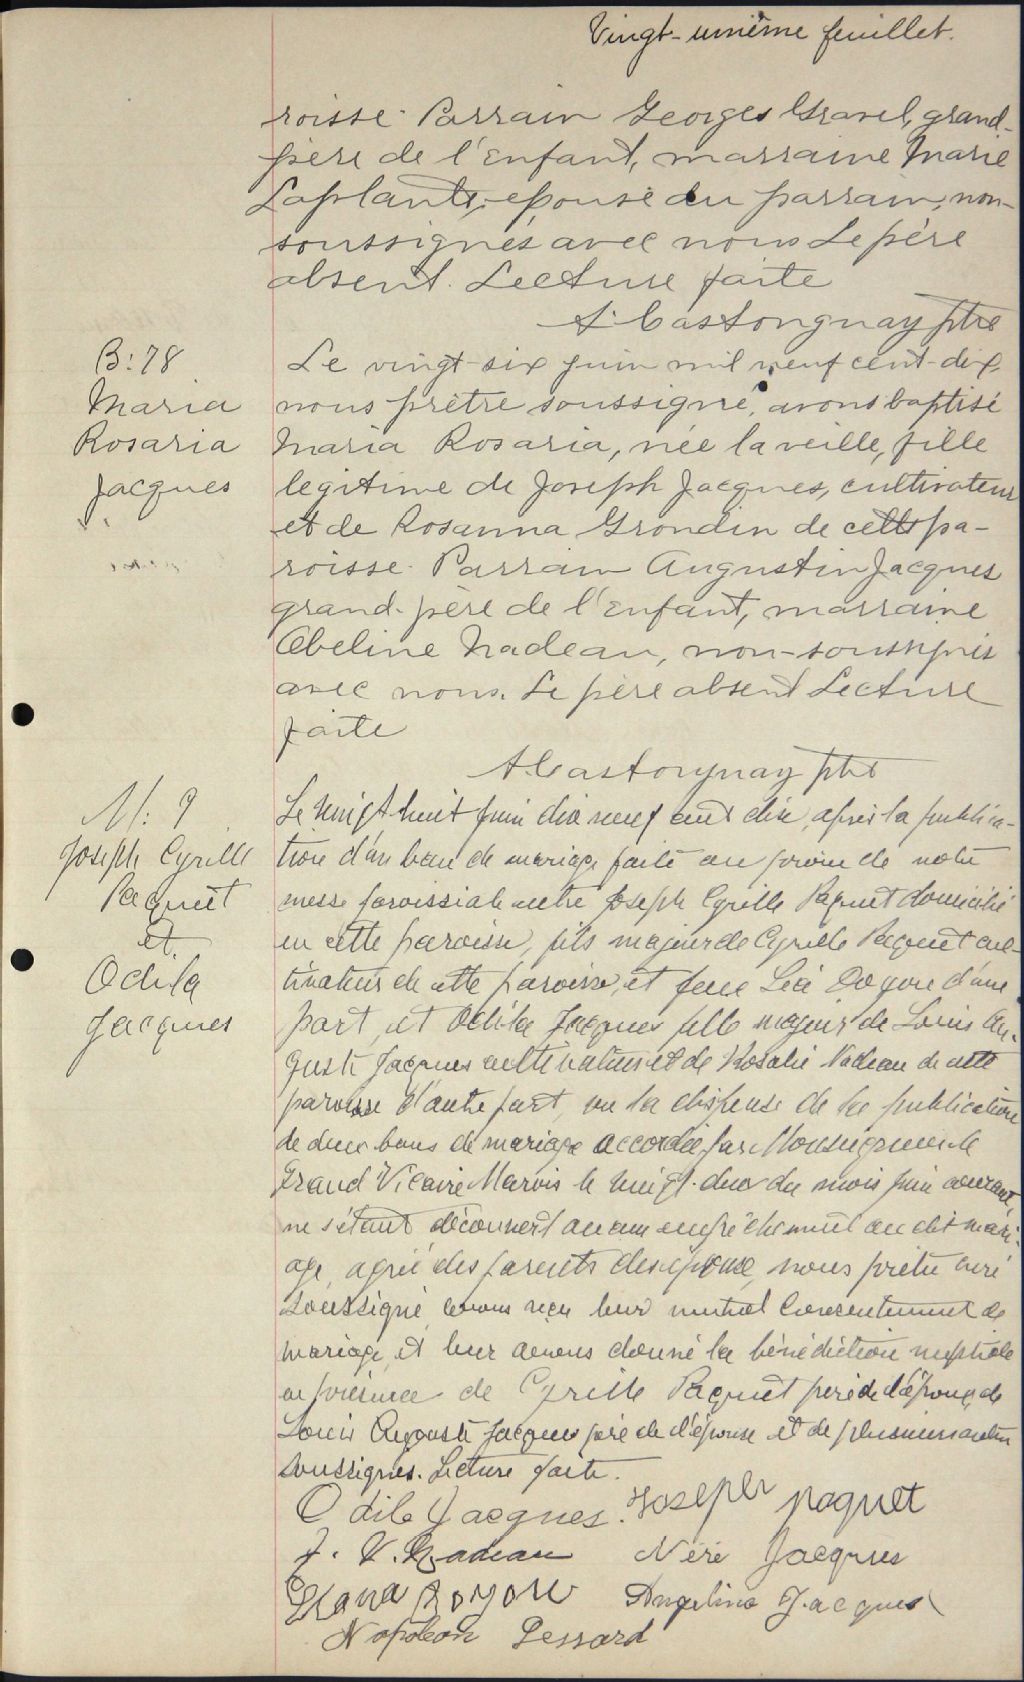 Vingt-unième feuillet.
roisse. Parrain Georges Gravel, grand-
père de l'Enfant, marraine Marie
Laplante, epouse du parrain, non-
soussignés avec nous Le père
absent. Lecture faite
A. Castonguay ptre
B: 78
Maria
Rosaria
Jacques
Le vingt-six juin mil neuf cent-dix,
nous prêtre soussigné, avons baptisé
Maria Rosaria, née la veille, fille
legitime de Joseph Jacques, cultivateur
et de Rosanna Grondin de cette pa-
roisse. Parrain Augustin Jacques
grand-père de l'enfant, marraine
Obeline Nadeau, non-soussignés
avec nous. Le père absent Lecture
faite
A. Castonguay ptre
M: 9
Joseph Cyrille
Paquet
et
Odila
Jacques
Le vingt huit juin dix neuf cent dix, après la publica-
tion d'un ban de mariage faite au prône de notre
messe paroissiale entre Joseph Cyrille Paquet domicilié
en cette paroisse, fils majeur de Cyrille Paquet cul-
tivateur de cette paroisse, et feue Léa Doyon d'une
part, et Odila Jacques fille majeur de Louis Au-
guste Jacques cultivateur et de Rosalie Nadeau de cette
paroisse d'autre part, vu la dispense de la publication
de deux bans de mariage accordée par Monseigneur le
Grand Vicaire Marois le vingt-deux du mois juin courant,
ne s'étant découvert aucun empêchement au dit mari-
age, agrée des parents des époux, nous prêtre curé
soussigné, avons reçu leur mutuel consentement de
mariage, et leur avons donné la bénédiction nuptiale
en présence de Cyrille Paquet père de l'époux, de
Louis Auguste Jacques père de l'épouse et de plusieurs autres
soussignés. Lecture faite.
Odila Jacques. Joseph paquet
J. V. Nadeau Néré Jacques
Doyon Angelina Jacques
Napoléon Lessard